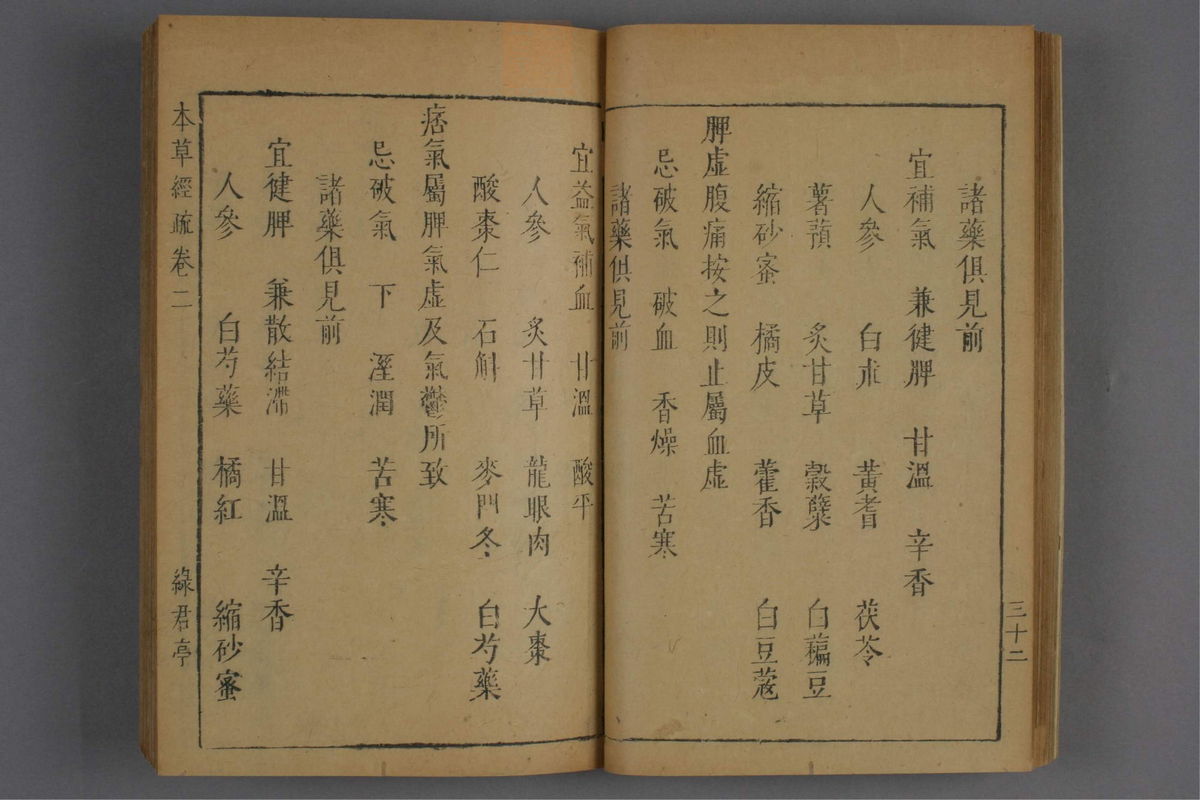 諸藥俱見前
宜補氣 兼健脾 甘溫 辛香
人參 白朮 黃耆 茯苓
薯蕷 炙甘草 穀糵 白藊豆
縮砂蜜 橘皮 藿香 白豆蔻
脾虛腹痛按之則止屬血虛
忌破氣 破血 香燥 苦寒
諸藥俱見前
三十二
宜益氣補血 甘溫 酸平
人參 炙甘草 龍眼肉 大棗
酸棗仁 石斛 麥門冬 白芍藥
痞氣屬脾氣虛及氣鬱所致
忌破氣 下 溼潤 苦寒
諸藥俱見前
宜健脾 兼散結滯 甘溫 辛香
人參 白芍藥 橘紅 縮砂蜜
本草經疏卷二 綠君亭